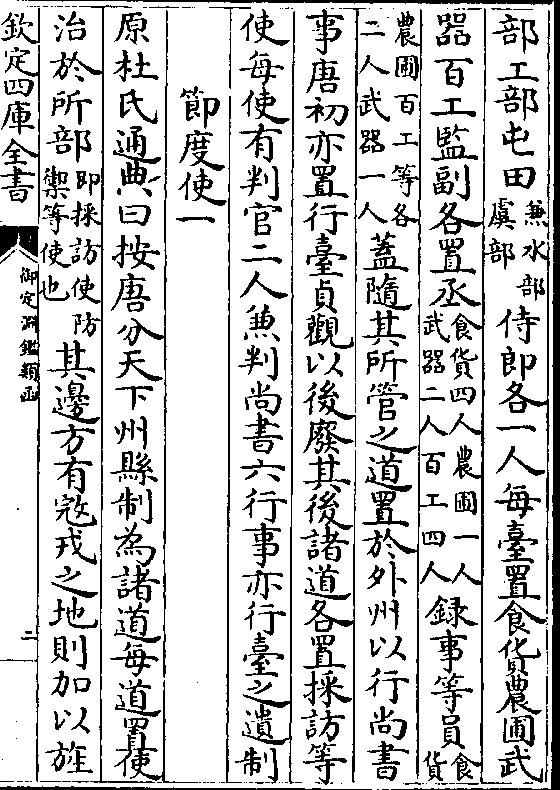 部工部屯田兼水部虞部侍郎各一人每臺置食貨農圃武
器百工監副各置丞食貨四人農圃一人武器二人百工四人錄事等員食貨
農圃百工等各二人武器一人蓋隨其所管之道置於外州以行尚書
事唐初亦置行臺貞觀以後廢其後諸道各置採訪等
使每使有判官二人兼判尚書六行事亦行臺之遺制
節度使一
原杜氏通典曰按唐分天下州縣制為諸道每道置使
治於所部即採訪使防禦等使也其邊方有寇戎之地則加以旌
欽定四庫全書
御定淵鑑類函
二